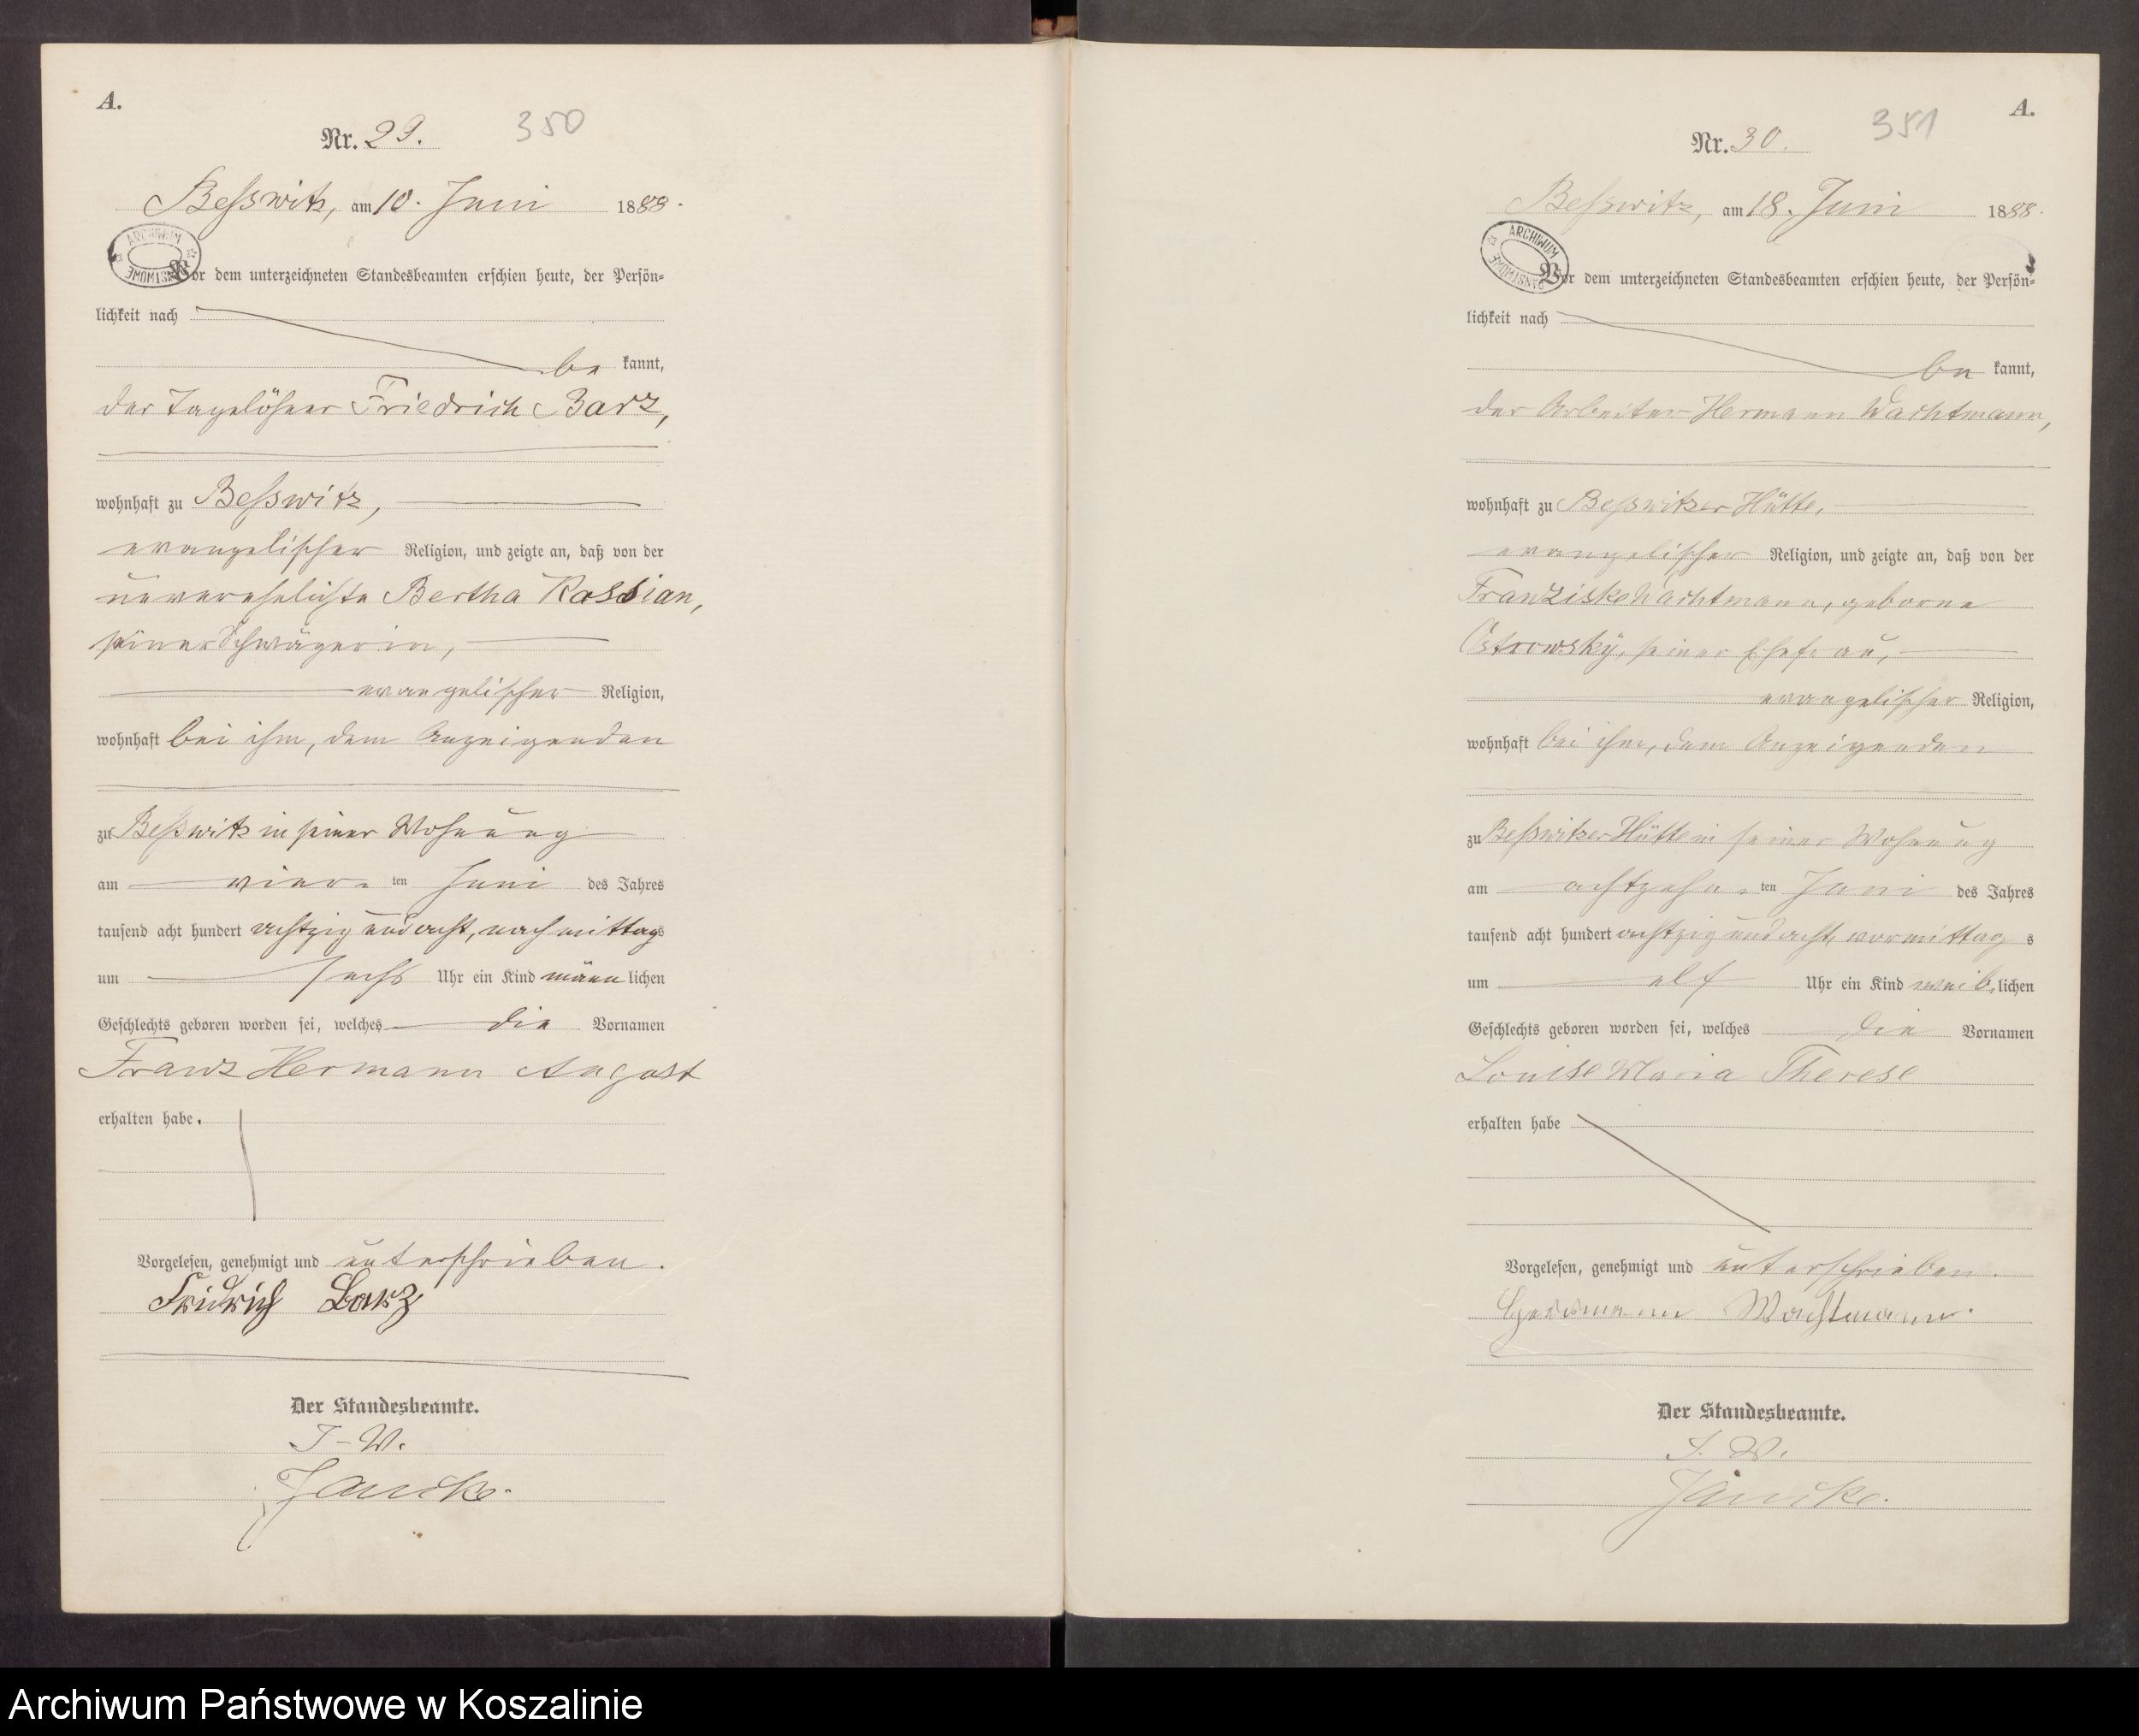 A.
Nr. 29.
350
Besswitz, am 10. Juni 1888.
ARCHIWUM PAŃSTWOWE
Vor dem unterzeichneten Standesbeamten erschien heute, der Persön=
lichkeit nach
be kannt,
der Tagelöhner Friedrich Barz,
wohnhaft zu Besswitz,
evangelischer Religion, und zeigte an, daß von der
unverehelichte Bertha Kassian,
seiner Schwägerin,
evangelischer Religion,
wohnhaft bei ihm, dem Anzeigenden
zu Besswitz in seiner Wohnung
am vier- ten Juni des Jahres
tausend acht hundert achtzig und acht, nachmittags
um sechs Uhr ein Kind männ lichen
Geschlechts geboren worden sei, welches die Vornamen
Franz Hermann August
erhalten habe.
Vorgelesen, genehmigt und unterschrieben.
Fridrich Barz
Der Standesbeamte.
I-V.
Jancke.
A.
Nr. 30.
351
Besswitz, am 18. Juni 1888.
ARCHIWUM PAŃSTWOWE
Vor dem unterzeichneten Standesbeamten erschien heute, der Persön=
lichkeit nach
be kannt,
der Arbeiter Hermann Wachtmann,
wohnhaft zu Besswitzer Hütte,
evangelischer Religion, und zeigte an, daß von der
Franziske Wachtmann, geborne
Ostrowsky, seiner Ehefrau,
evangelischer Religion,
wohnhaft bei ihm, dem Anzeigenden
zu Besswitzer Hütte in seiner Wohnung
am achtzehn- ten Juni des Jahres
tausend acht hundert achtzig und acht, vormittag s
um elf Uhr ein Kind weib- lichen
Geschlechts geboren worden sei, welches die Vornamen
Louise Maria Therese
erhalten habe
Vorgelesen, genehmigt und unterschrieben.
Herrmann Wachtmann.
Der Standesbeamte.
I. V.
Jancke.
Archiwum Państwowe w Koszalinie